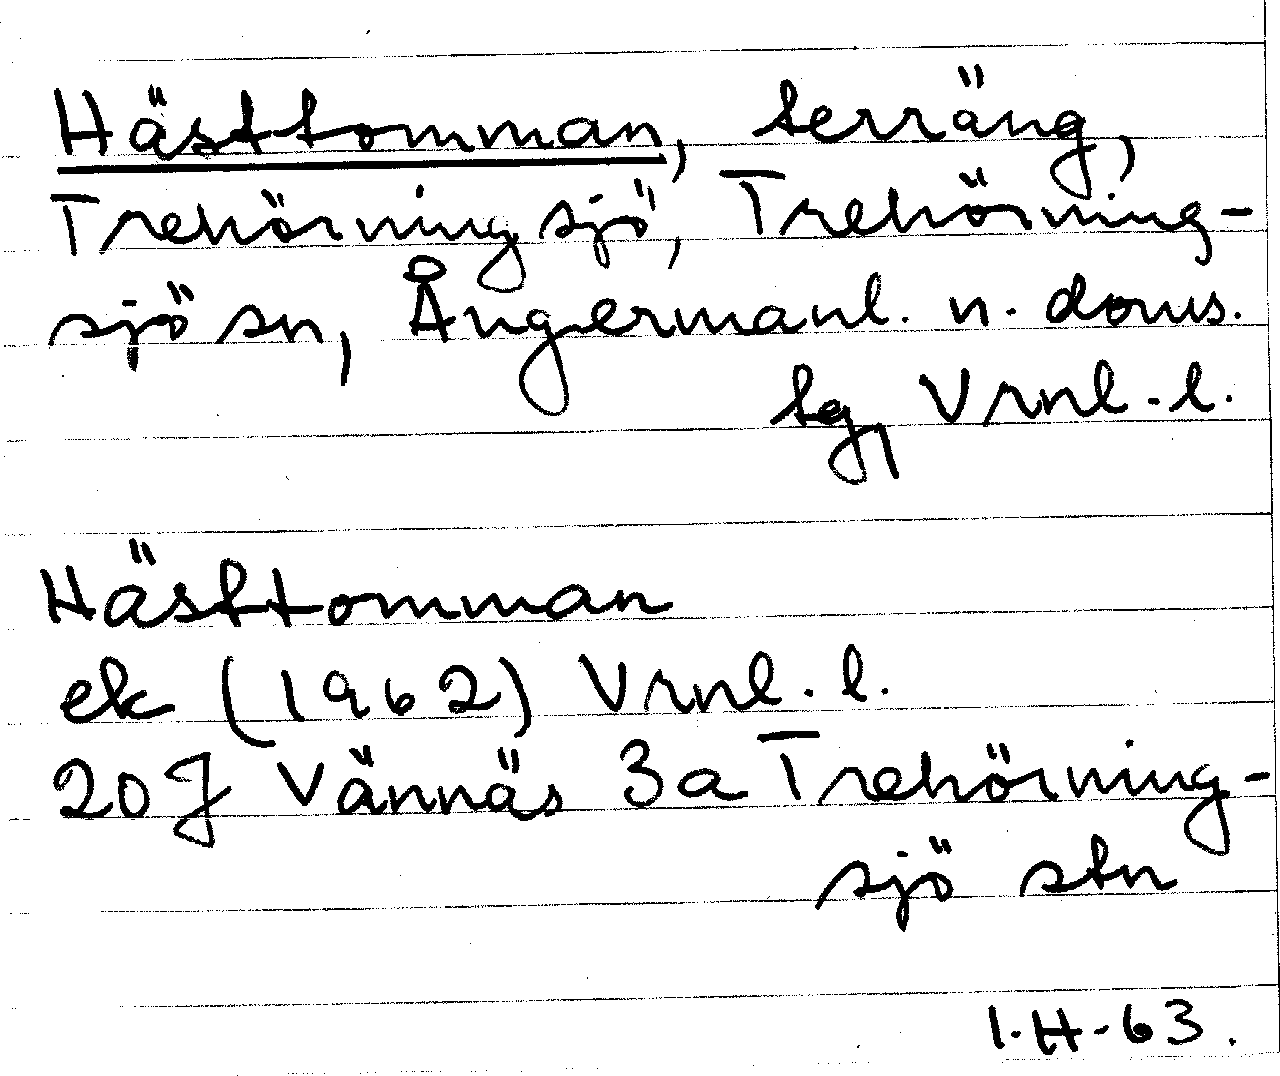 Hästtomman, terräng,
Trehörningsjö, Trehörning-
sjö sn, Ångermanl. n. doms.
tg, Vrnl. l.
Hästtomman
ek (1962) Vrnl. l.
20J Vännäs 3a Trehörning-
sjö stn
1.H-63.